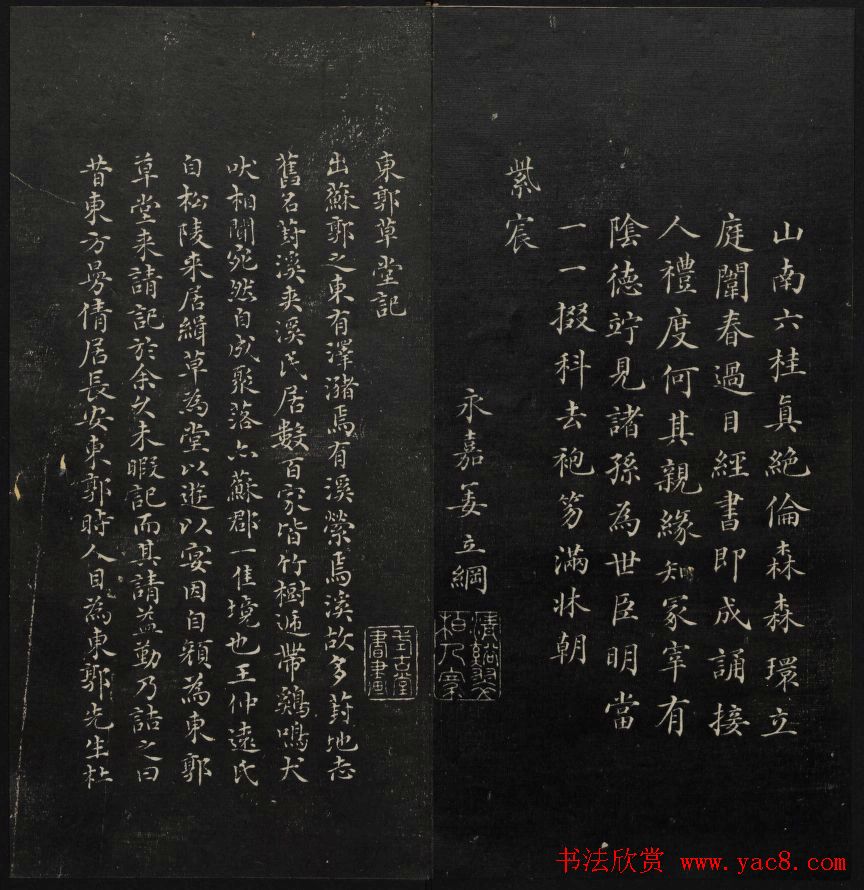 山南六桂眞絕倫森森環立
庭闈春過目經書即成誦接
人禮度何其親緣知冢宰有
陰德竚見諸孫為世臣明當
一一掇科去袍笏滿牀朝
紫宸
永嘉姜立綱
東郭草堂記
出蘇郭之東有澤瀦焉有溪縈焉溪故多葑地志
舊名葑溪夾溪民居數百家皆竹樹迤帶鷄鳴犬
吠相聞宛然自成聚落亦蘇郡一佳境也王仲遠氏
自松陵来居緝草為堂以遊以宴因自顏為東郭
草堂来請記於余久未暇記而其請益勤乃詰之曰
昔東方曼倩居長安東郭時人目為東郭先生杜
书法欣赏 www.yac8.com